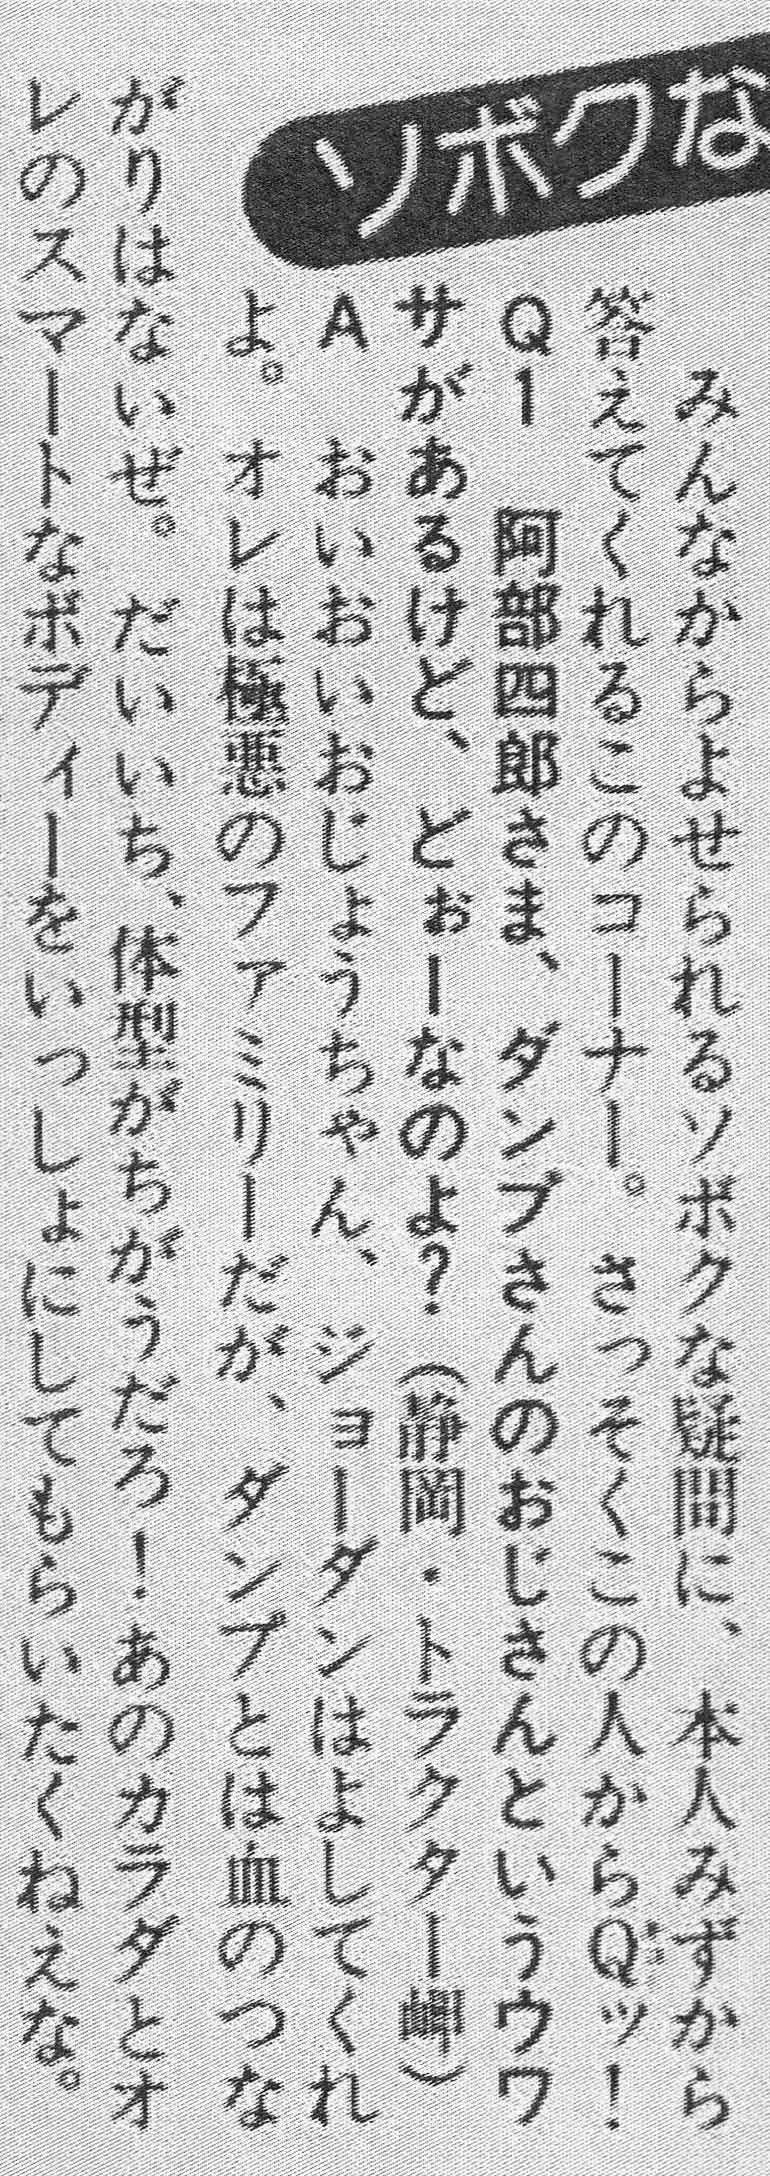 ソボクな
みんなからよせられるソボクな疑問に、本人みずから
答えてくれるこのコーナー。さっそくこの人からQッ!
Q1 阿部四郎さま、ダンプさんのおじさんというウワ
サがあるけど、どぉーなのよ?(静岡・トラクター岬)
A おいおいおじょうちゃん、ジョーダンはよしてくれ
よ。オレは極悪のファミリーだが、ダンプとは血のつな
がりはないぜ。だいいち、体型がちがうだろ!あのカラダとオ
レのスマートなボディーをいっしょにしてもらいたくねえな。